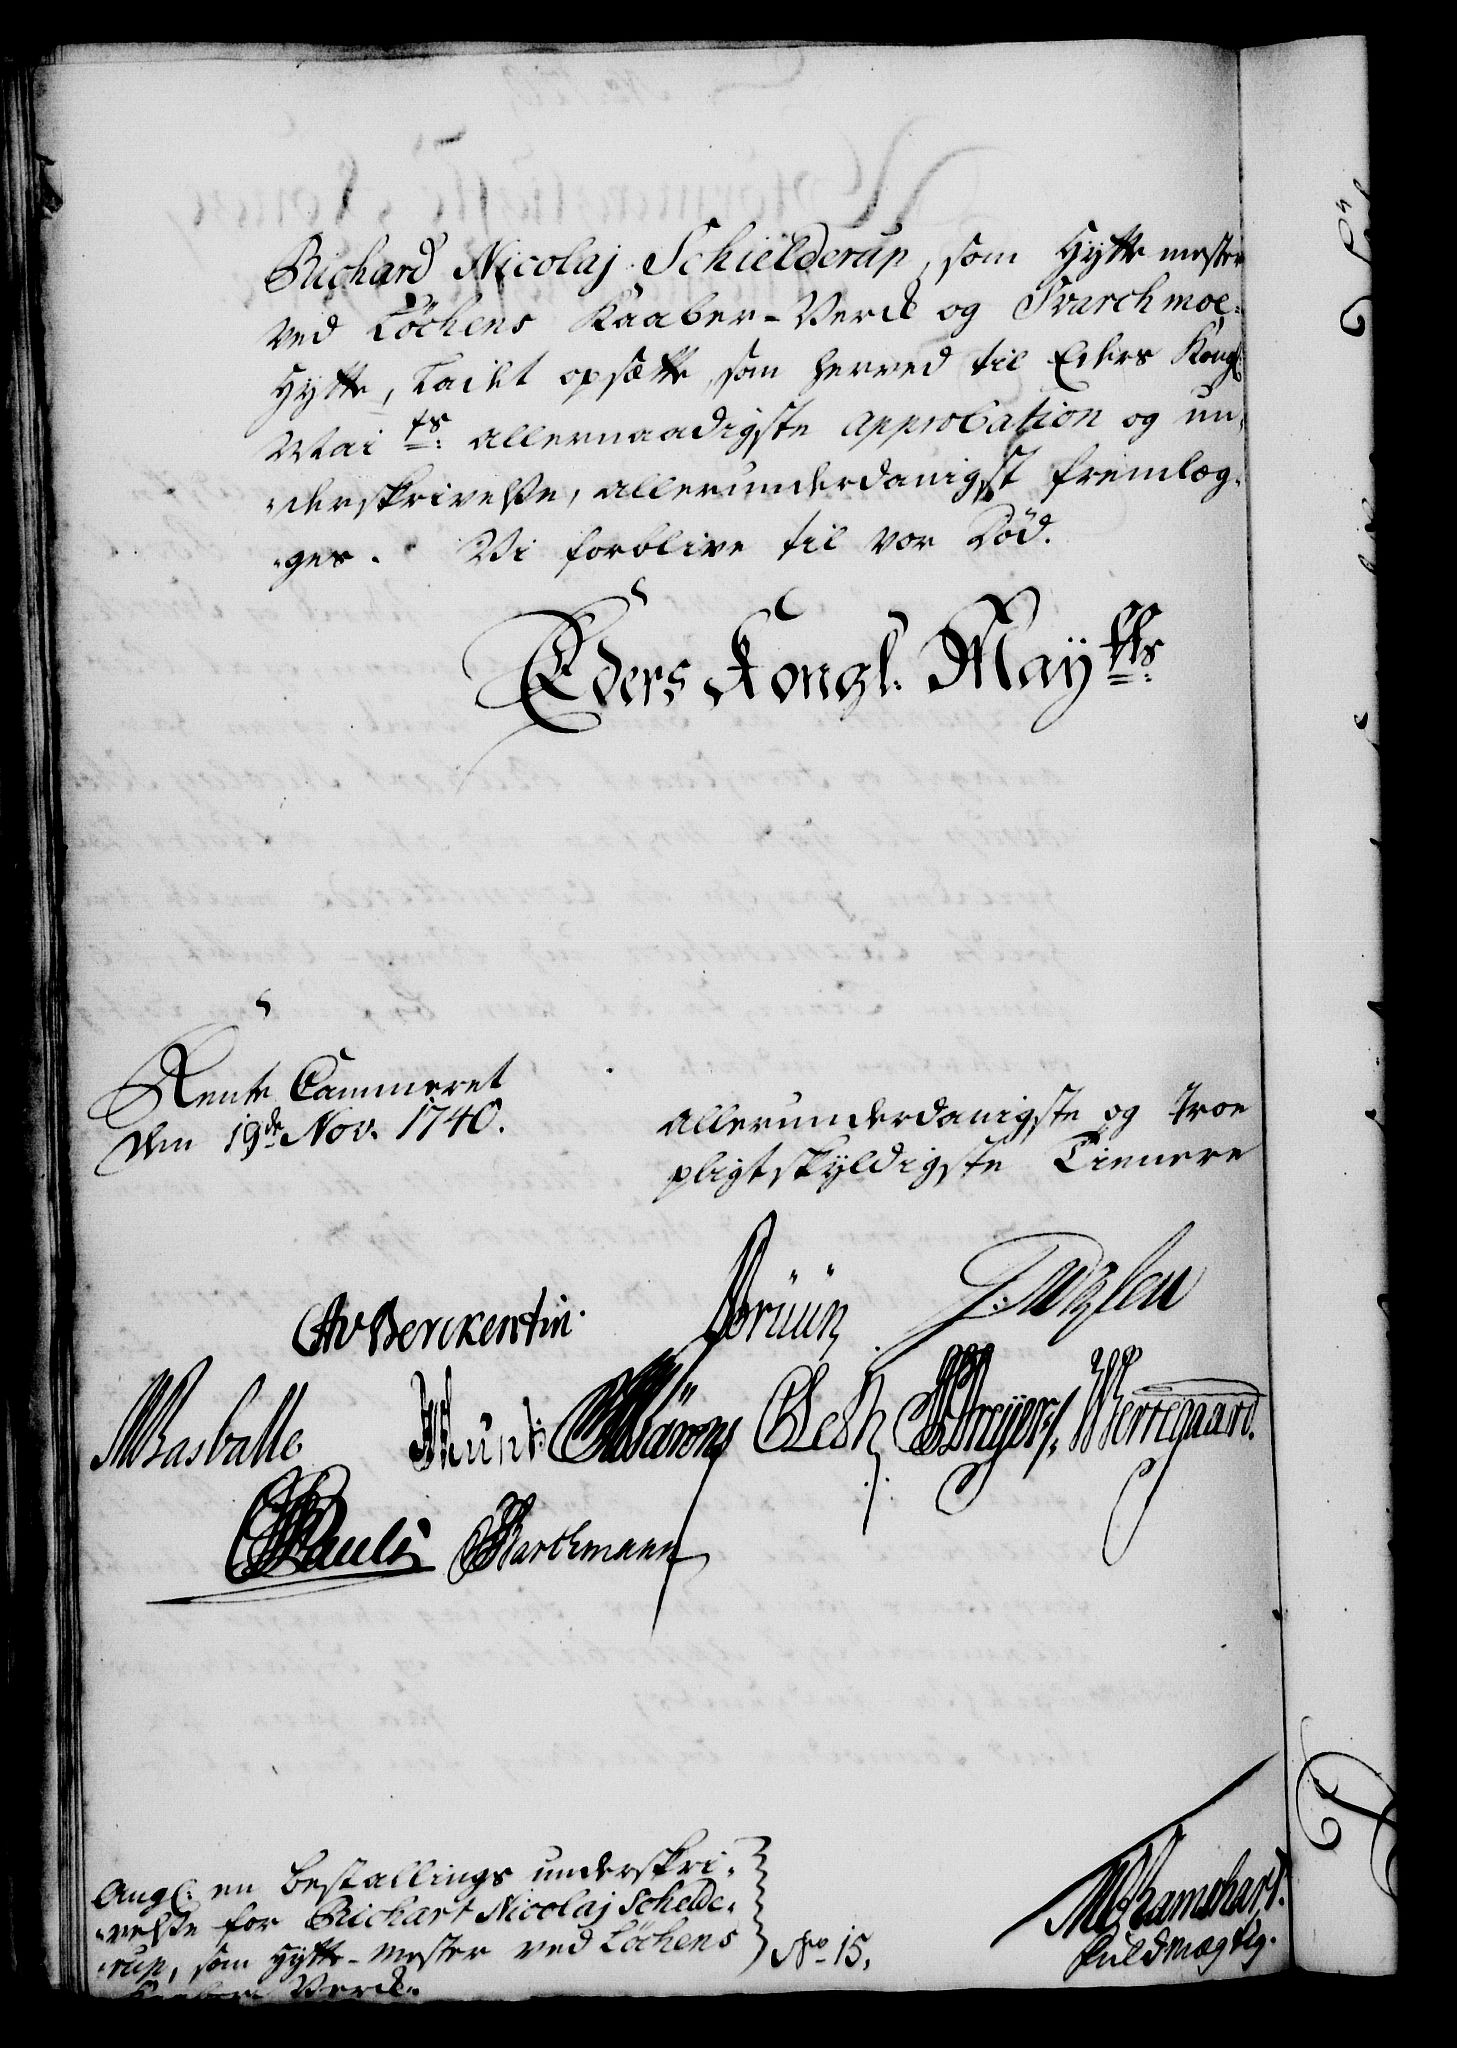 Richard Nicolaj Schielderup, som Hyttemester
ved Löchens Kaaber-Verck og Svarchmoe-
Hytte, ladet opsætte, som herved til Eders Kongl:
Mai ts: allernaadigste approbation og un-
-derskrivelse, allerunderdanigst fremlæg-
-ges. Vi forblive til vor Död.
Eders Kongl: May tts:
Rente Cammeret
den 19de Nov. 1740.
Allerunderdanigste og troe
pligtskyldigste Tienere
CAvBerckentin.
Brüün
Rasballe
Munk:
Dreyer
Wiertegaard.
Pauli
Barchmann
Ang: en Bestallings underskri-
-velse for Richart Nicolaj Schelde-
-rup, som Hytte-mester ved Löchens
Kaaber Verck.
No 15.
MRamshart.
fuldmægtig.